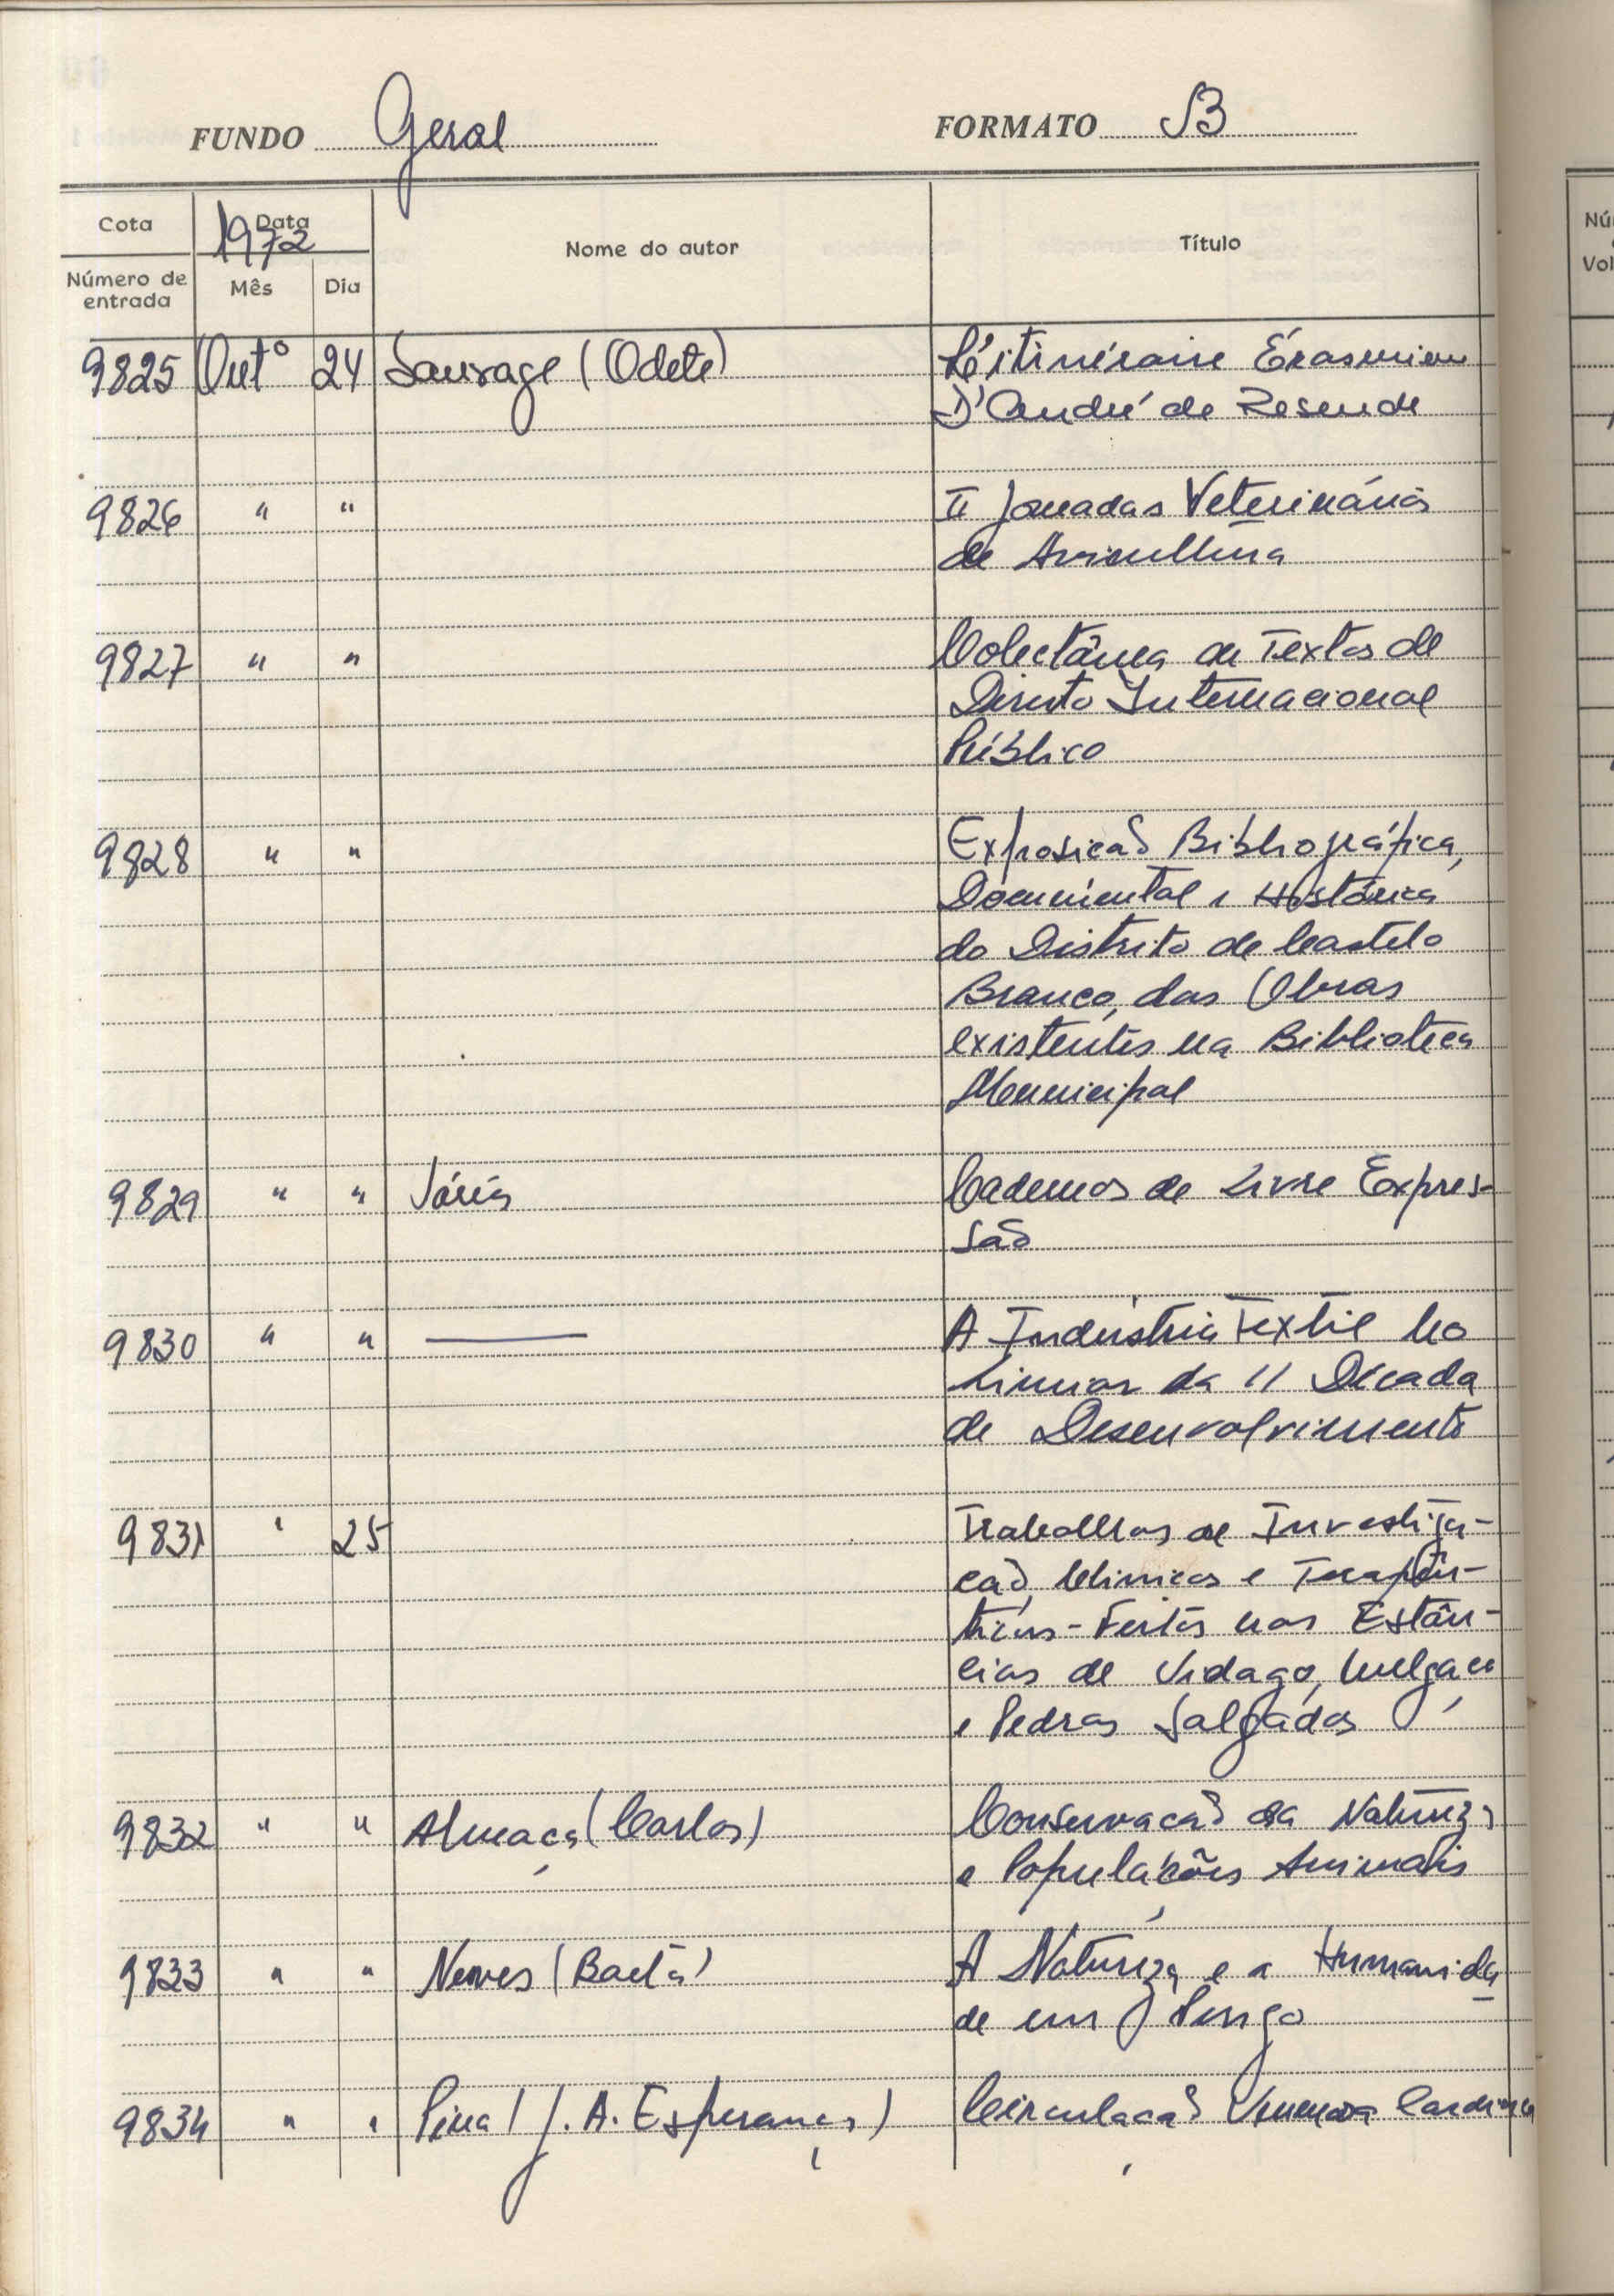 FUNDO Geral FORMATO B
Cota Data 1972 Nome do autor Título
Número de entrada Mês Dia
9825 Outº 24 Sauvage (Odete) L'itinéraire Érasmien
D'André de Resende
9826 " " II Jornadas Veterinárias
de Avicultura
9827 " " Colectânea de Textos de
Direito Internacional
Público
9828 " " Exposição Bibliográfica,
Documental e Histórica
do Distrito de Castelo
Branco, das Obras
existentes na Biblioteca
Municipal
9829 " " Vários Cadernos de Livre Expres-
são
9830 " " — A Indústria Textil no
Limiar da II Década
de Desenvolvimento
9831 " 25 Trabalhos de Investiga-
ção, Clinicos e Terapêu-
ticos-Feitos nas Estân-
cias de Vidago, Melgaço
e Pedras Salgados
9832 " " Almaça (Carlos) Conservação da Natureza
e Populações Animais
9833 " " Neves (Baeta) A Natureza e a Humanida
de em Perigo
9834 " " Pina (J. A. Esperança) Circulação Venenosa Cardíaca
Nú
Vol